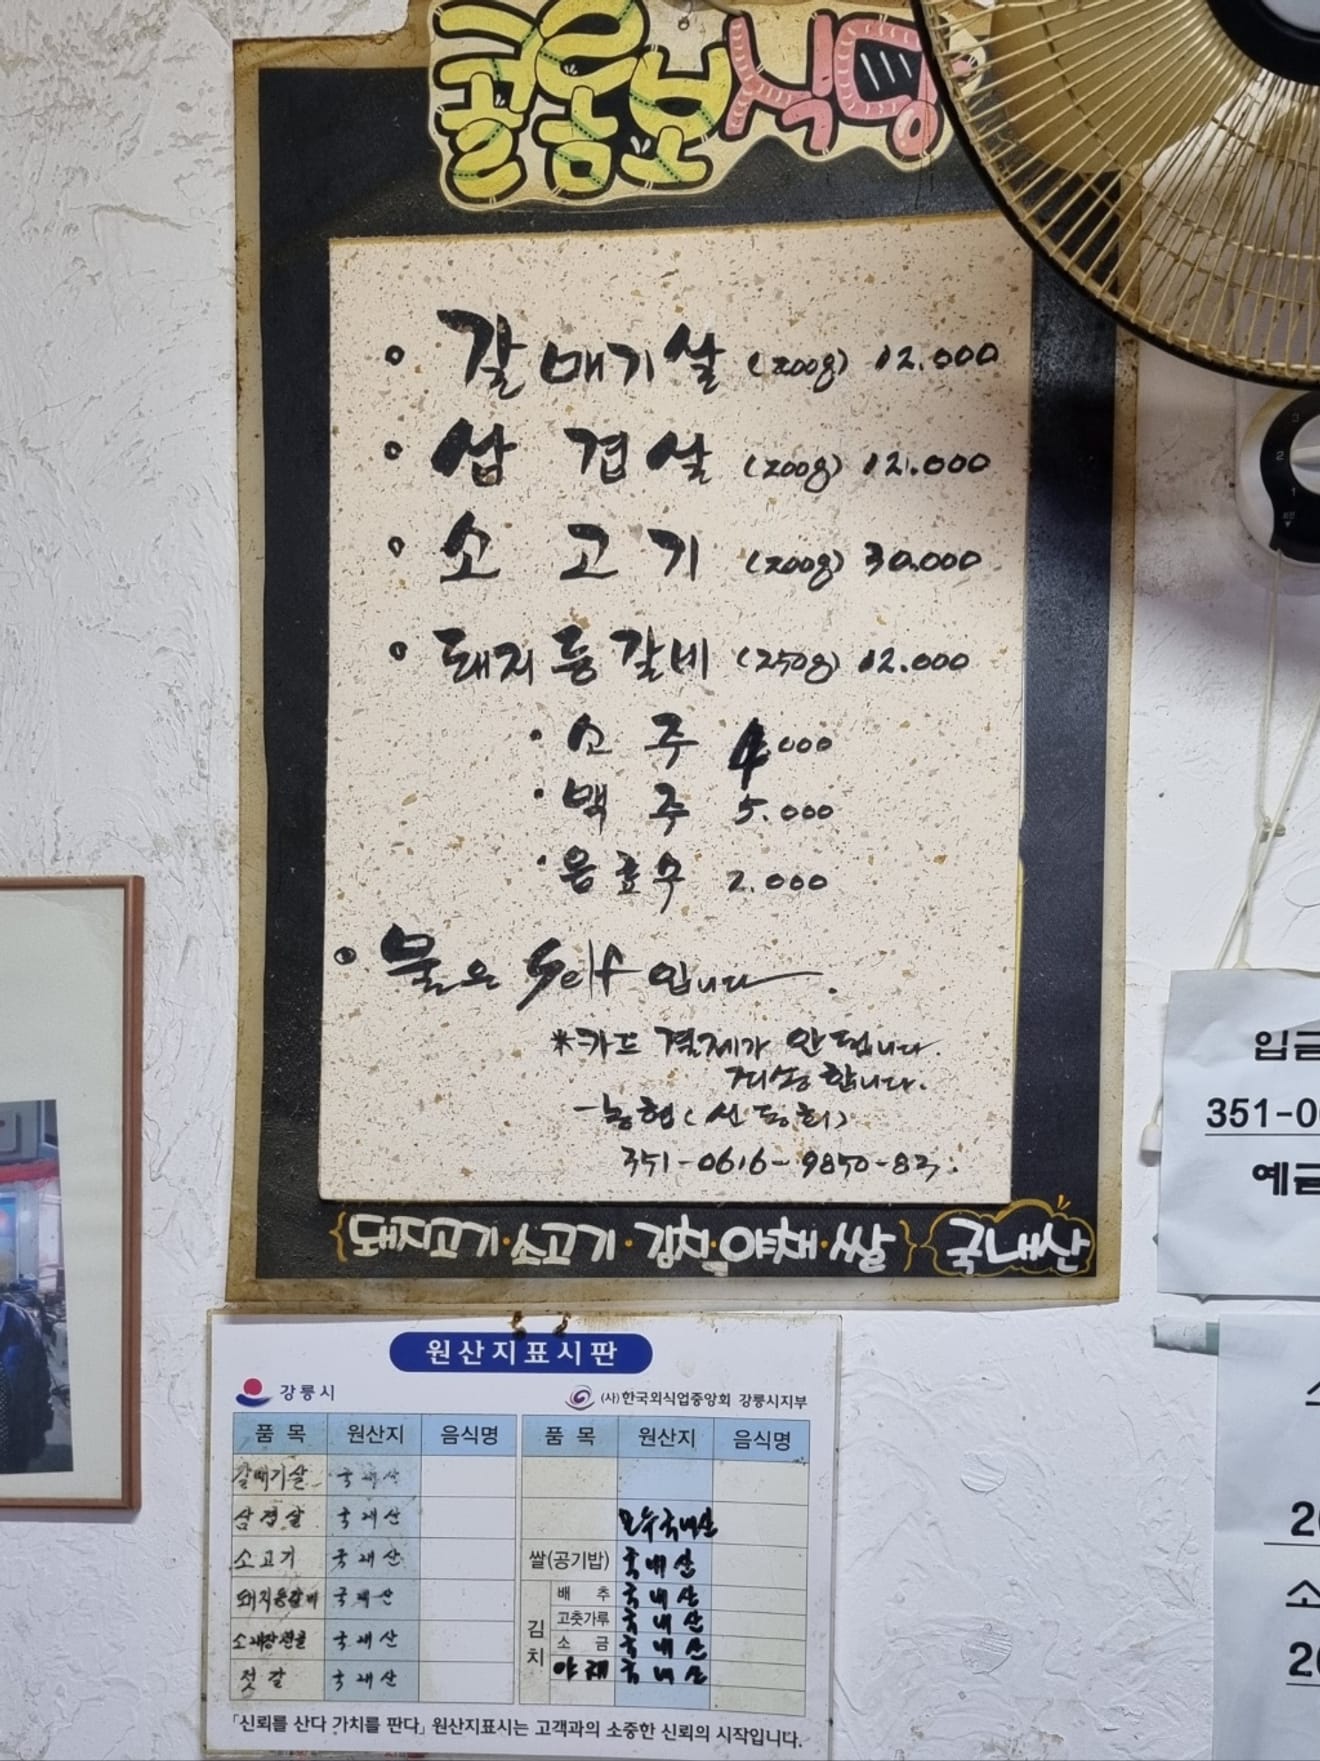 콜롬보식당
갈매기살 (200g) 12.000
삼겹살 (200g) 12.000
소고기 (200g) 30.000
돼지등갈비 (250g) 12.000
소주 4.000
맥주 5.000
음료수 2.000
물은 Self 입니다.
*카드 결제가 안됩니다.
죄송합니다.
-농협(선동희)
351-0616-9850-83.
{돼지고기·소고기·김치·야채·쌀} 국내산
원산지표시판
강릉시
(사)한국외식업중앙회 강릉시지부
품목 원산지 음식명 품목 원산지 음식명
갈매기살 국내산
삼겹살 국내산 모두국내산
소고기 국내산 쌀(공기밥) 국내산
돼지등갈비 국내산 김치 배추 국내산
고춧가루 국내산
소내장전골 국내산 소금 국내산
젓갈 국내산 야채 국내산
「신뢰를 산다 가치를 판다」 원산지표시는 고객과의 소중한 신뢰의 시작입니다.
입금
351-0
예금
20
소
20
3
2
1